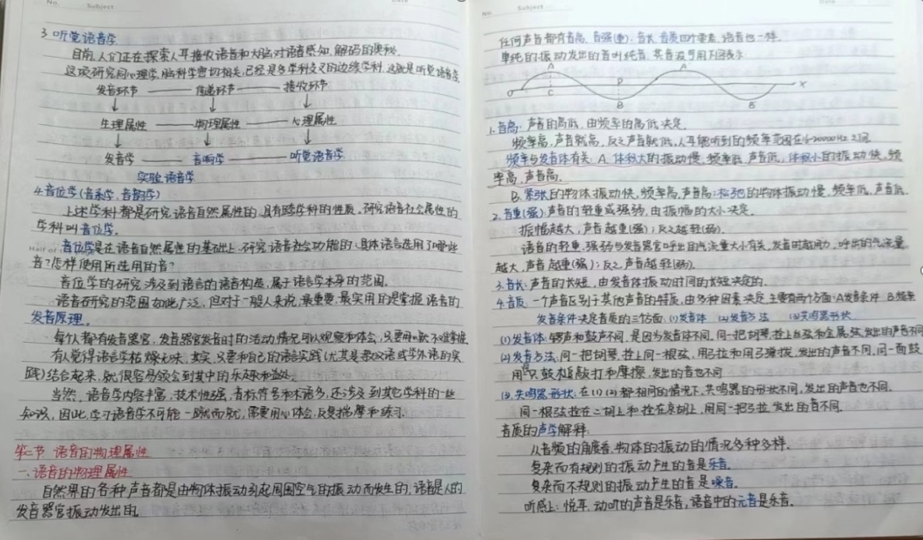 3. 听觉语音学
目前,人们正在探索人耳接收语音和大脑对语音感知、解码的奥秘。
这项研究同心理学、脑科学密切相关,已经是多学科交叉的边缘学科,这就是听觉语音学
发音环节 传递环节 接收环节
生理属性 物理属性 心理属性
发音学 音响学 听觉语音学
实验语音学
4. 音位学(音系学、音韵学)
上述学科都是研究语音自然属性的,具有跨学科的性质。研究语音社会属性的
学科叫音位学。
音位学是在语音自然属性的基础上,研究语音社会功能的,具体语言选用了哪些
音?怎样使用所选用的音?
音位学的研究涉及到语言的语音构造,属于语言学本身的范围。
语音研究的范围如此广泛,但对于一般人来说,最重要、最实用的是掌握语音的
发音原理。
每个人都有发音器官,发音器官发音时的活动情况可以观察和体会,只要用心就不难掌握
有人觉得语音学枯燥无味,其实,只要和自己的语言实践(尤其是教汉语或学外语的实
践)结合起来,就很容易领会到其中的乐趣和益处。
当然,语音学内容丰富,技术性强,音标符号和术语多,还涉及到其它学科的一些
知识,因此,学习语音学不可能一蹴而就,需要用心体会,反复揣摩和练习。
第二节 语音的物理属性
一、语音的物理属性
自然界的各种声音都是由物体振动引起周围空气的振动而发生的,语音是人的
发音器官振动发出的。
任何声音都有音高、音强(重)、音长、音质四个要素,语音也一样。
单纯的振动发出的音叫纯音,其音波可用下图表示
A A
O C D X
B B
1. 音高:声音的高低,由频率的高低决定。
频率高,声音就高,反之声音就低,人耳能听到的频率范围在16-20000Hz之间
频率与发音体有关:A. 体积大的振动慢,频率低,声音低,体积小的振动快,频
率高,声音高。
B. 紧张的物体振动快,频率高,声音高;松弛的物体振动慢,频率低,声音低
2. 音重(强)声音的轻重或强弱,由振幅的大小决定。
振幅越大,声音越重(强);反之越轻(弱)。
语音的轻重、强弱与发音器官呼出的气流量大小有关,发音时越用力,呼出的气流量
越大,声音越重(强);反之,声音越轻(弱)。
3. 音长:声音的长短,由发音体振动时间的长短决定的。
4. 音质:一个声音区别于其他声音的特质,由多种因素决定,主要有两个方面:A.发音条件 B.频率
发音条件决定音质的三方面:(1)发音体 (2)发音方法 (3)共鸣器形状
(1)发音体:锣声和鼓声不同,是因为发音体不同,同一把胡琴,拉上丝弦和金属弦,发出的声音不同
(2)发音方法:同一把胡琴,拉上同一根弦,用弓拉和用弓弹拨,发出的声音不同,同一面鼓
用一只鼓槌敲打和摩擦,发出的音也不同
(3)共鸣器形状:在(1)(2)都相同的情况下,共鸣器的形状不同,发出的声音也不同。
同一根弦拉在二胡上和拉在京胡上,用同一把弓拉发出的音不同。
音质的声学解释:
从音频的角度看,物体的振动的情况多种多样。
复杂而有规则的振动产生的音是乐音。
复杂而不规则的振动产生的音是噪音。
听感上:悦耳、动听的声音是乐音,语音中的元音是乐音。